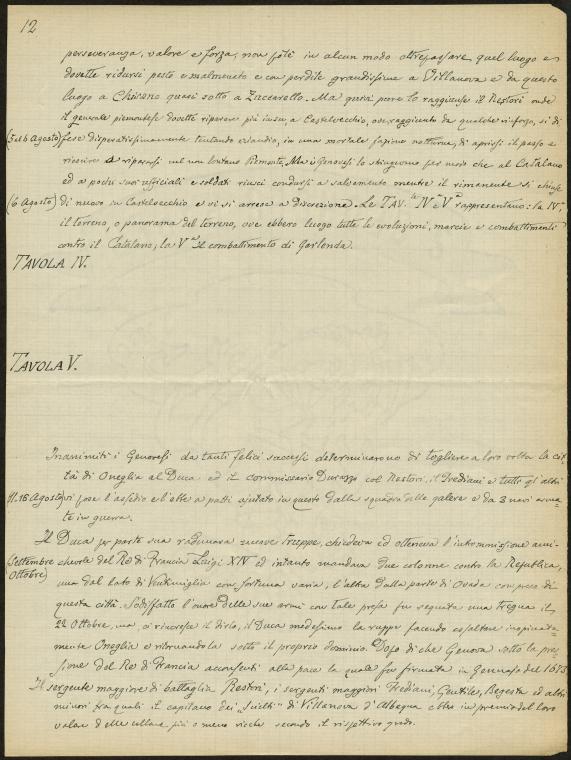 12
perseveranza, valore e forza, non potè in alcun modo oltrepassare quel luogo e
dovette ridursi pesto e malmenato e con perdite grandissime a Villanova e da questo
luogo a Chisano quasi sotto a Zuccarello. Ma quivi pure lo raggiunse il Restori onde
il generale piemontese dovette riparare più in su a Castelvecchio, ove raggiunto da qualche rinforzo, si di
(5 al 6 Agosto) fese disperatissimamente tentando eziandio, in una mortale fazione notturna, di aprirsi il passo e
riescire a ripararsi nel non lontano Piemonte. Ma i Genovesi lo strinsero per modo che al Catalano
ed a pochi suoi ufficiali e soldati riuscì condursi a salvamento mentre il rimanente si chiuse
(6 Agosto) di nuovo in Castelvecchio e vi si arrese a discrezione. Le TAV.le IVa e Va rappresentano: la IVa,
il terreno, o panorama del terreno, ove ebbero luogo tutte le evoluzioni, marcie e combattimenti
contro il Catalano; la Va il combattimento di Garlenda.
TAVOLA IV.
TAVOLA V.
Inanimiti i Genovesi da tanti felici successi determinarono di togliere a loro volta la cit
tà di Oneglia al Duca: ed il commissario Durazzo col Restori, il Frediani e tutti gli altri
11.16 Agosto) vi pose l'assedio e l'ebbe a patti ajutato in questo dalla squadra delle galere e da 3 navi arma=
te in guerra.
Il Duca per parte sua radunava nuove truppe, chiedeva ed otteneva l'intromissione ami=
(Settembre chevole del Re di Francia Luigi XIV ed intanto mandava due colonne contro la Repubblica,
Ottobre) una dal lato di Ventimiglia con fortuna varia, l'altra dalla parte di Ovada con presa di
questa città. Sodisfatto l'onore delle sue armi con tale presa fu seguita una tregua il
22 Ottobre, ma, ci rincresce il dirlo, il Duca medesimo la ruppe facendo assaltare inopinata=
mente Oneglia e ritornandola sotto il proprio dominio. Dopo di che Genova sotto la pres
sione del Re di Francia acconsentì alla pace la quale fu firmata in Gennajo del 1673.
Il sergente maggiore di battaglia Restori, i sergenti maggiori Frediani, Gentile, Begesta ed altri
minori fra quali il capitano dei "scielti" di Villanova d'Albenga ebbe in premio del loro
valore delle collane più o meno ricche secondo il rispettivo grado.